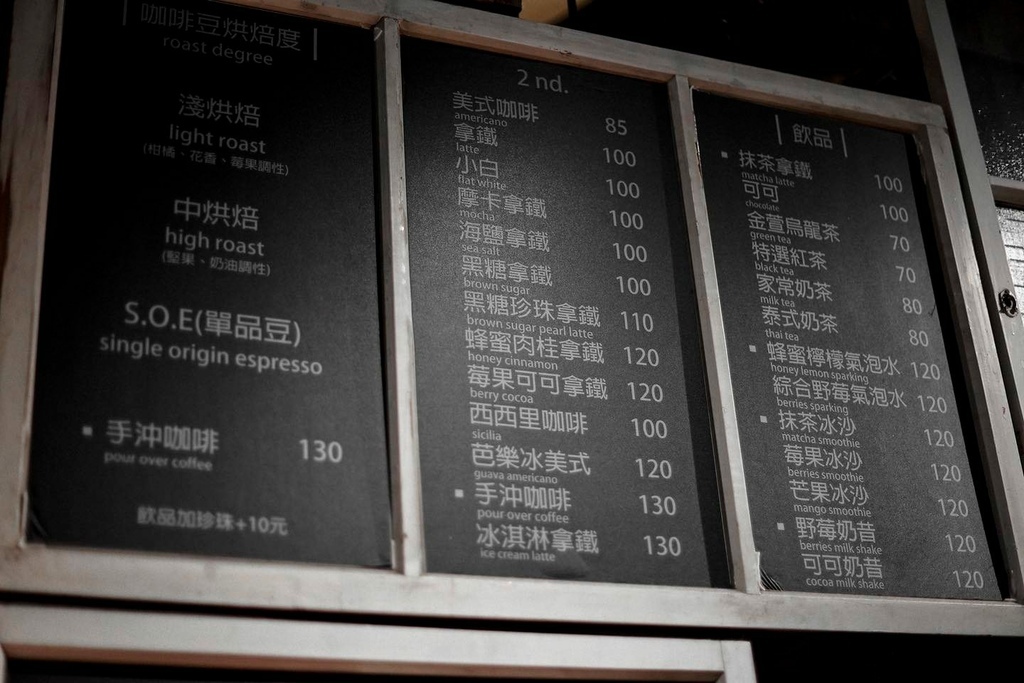 咖啡豆烘焙度
roast degree
淺烘焙
light roast
(柑橘、花香、莓果調性)
中烘焙
high roast
(堅果、奶油調性)
S.O.E(單品豆)
single origin espresso
手沖咖啡 130
pour over coffee
飲品加珍珠+10元
2 nd.
美式咖啡 85
americano
拿鐵 100
latte
小白 100
flat white
摩卡拿鐵 100
mocha
海鹽拿鐵 100
sea salt
黑糖拿鐵 100
brown sugar
黑糖珍珠拿鐵 110
brown sugar pearl latte
蜂蜜肉桂拿鐵 120
honey cinnamon
莓果可可拿鐵 120
berry cocoa
西西里咖啡 100
sicilia
芭樂冰美式 120
guava americano
手沖咖啡 130
pour over coffee
冰淇淋拿鐵 130
ice cream latte
飲品
抹茶拿鐵 100
matcha latte
可可 100
chocolate
金萱烏龍茶 70
green tea
特選紅茶 70
black tea
家常奶茶 80
milk tea
泰式奶茶 80
thai tea
蜂蜜檸檬氣泡水 120
honey lemon sparking
綜合野莓氣泡水 120
berries sparking
抹茶冰沙 120
matcha smoothie
莓果冰沙 120
berries smoothie
芒果冰沙 120
mango smoothie
野莓奶昔 120
berries milk shake
可可奶昔 120
cocoa milk shake